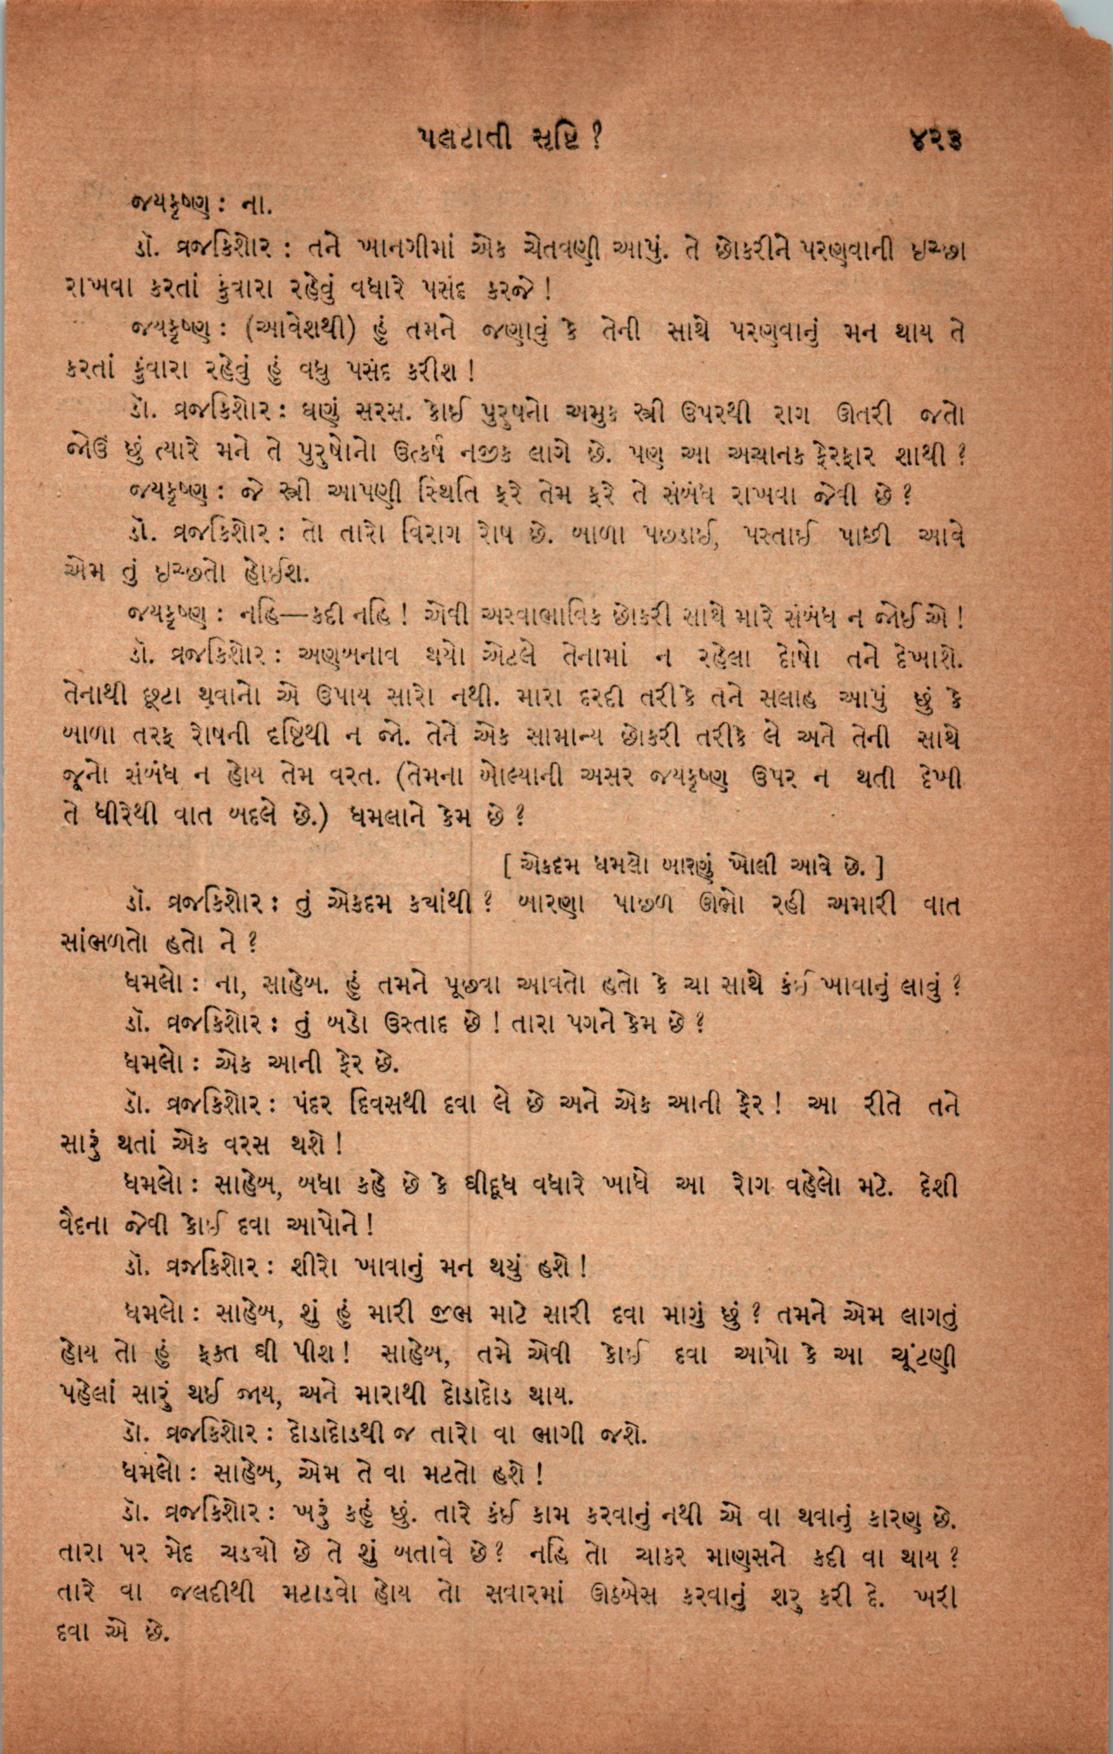 પલટાતી સૃષ્ટિ ? ૪૨૩
જયકૃષ્ણ : ના.
ડૉ. વ્રજકિશોર : તને ખાનગીમાં એક ચેતવણી આપું. તે છોકરીને પરણવાની ઇચ્છા
રાખવા કરતાં કુંવારા રહેવું વધારે પસંદ કરજે !
જયકૃષ્ણ : (આવેશથી) હું તમને જણાવું કે તેની સાથે પરણવાનું મન થાય તે
કરતાં કુંવારા રહેવું હું વધુ પસંદ કરીશ !
ડૉ. વ્રજકિશોર : ઘણું સરસ. કોઈ પુરુષનો અમુક સ્ત્રી ઉપરથી રાગ ઊતરી જતો
જોઉં છું ત્યારે મને તે પુરુષોનો ઉત્કર્ષ નજીક લાગે છે. પણ આ અચાનક ફેરફાર શાથી ?
જયકૃષ્ણ : જે સ્ત્રી આપણી સ્થિતિ ફરે તેમ ફરે તે સંબંધ રાખવા જેવી છે ?
ડૉ. વ્રજકિશોર : તો તારો વિરાગ રોષ છે. બાળા પછડાઈ, પસ્તાઈ પાછી આવે
એમ તું ઇચ્છતો હોઈશ.
જયકૃષ્ણ : નહિ—કદી નહિ ! એવી અસ્વાભાવિક છોકરી સાથે મારે સંબંધ ન જોઈએ !
ડૉ. વ્રજકિશોર : અણબનાવ થયો એટલે તેનામાં ન રહેલા દોષો તને દેખાશે.
તેનાથી છૂટા થવાનો એ ઉપાય સારો નથી. મારા દરદી તરીકે તને સલાહ આપું છું કે
બાળા તરફ રોષની દૃષ્ટિથી ન જો. તેને એક સામાન્ય છોકરી તરીકે લે અને તેની સાથે
જૂનો સંબંધ ન હોય તેમ વરત. (તેમના બોલ્યાની અસર જયકૃષ્ણ ઉપર ન થતી દેખી
તે ધીરેથી વાત બદલે છે.) ધમલાને કેમ છે ?
[ એકદમ ધમલો બારણું ખોલી આવે છે. ]
ડૉ. વ્રજકિશોર : તું એકદમ ક્યાંથી ? બારણા પાછળ ઊભો રહી અમારી વાત
સાંભળતો હતો ને ?
ધમલો : ના, સાહેબ. હું તમને પૂછવા આવતો હતો કે ચા સાથે કંઈ ખાવાનું લાવું ?
ડૉ. વ્રજકિશોર : તું બડો ઉસ્તાદ છે ! તારા પગને કેમ છે ?
ધમલો : એક આની ફેર છે.
ડૉ. વ્રજકિશોર : પંદર દિવસથી દવા લે છે અને એક આની ફેર ! આ રીતે તને
સારું થતાં એક વરસ થશે !
ધમલો : સાહેબ, બધા કહે છે કે ઘીદૂધ વધારે ખાધે આ રોગ વહેલો મટે. દેશી
વૈદના જેવી કોઈ દવા આપોને !
ડૉ. વ્રજકિશોર : શીરો ખાવાનું મન થયું હશે !
ધમલો : સાહેબ, શું હું મારી જીભ માટે સારી દવા માગું છું ? તમને એમ લાગતું
હોય તો હું ફક્ત ઘી પીશ ! સાહેબ, તમે એવી કોઈ દવા આપો કે આ ચૂંટણી
પહેલાં સારું થઈ જાય, અને મારાથી દોડાદોડ થાય.
ડૉ. વ્રજકિશોર : દોડાદોડથી જ તારો વા ભાગી જશે.
ધમલો : સાહેબ, એમ તે વા મટતો હશે !
ડૉ. વ્રજકિશોર : ખરું કહું છું. તારે કંઈ કામ કરવાનું નથી એ વા થવાનું કારણ છે.
તારા પર મેદ ચડ્યો છે તે શું બતાવે છે ? નહિ તો ચાકર માણસને કદી વા થાય ?
તારે વા જલદીથી મટાડવો હોય તો સવારમાં ઊઠબેસ કરવાનું શરુ કરી દે. ખરી
દવા એ છે.